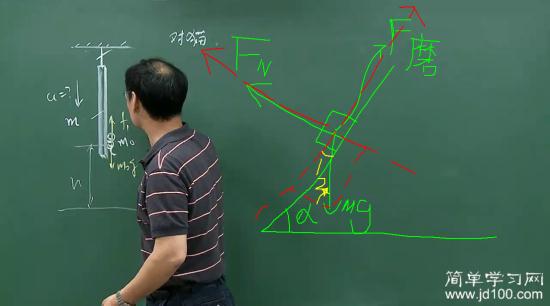 F_N
F
磨
u=?
m
m₀
m₀g
h
α
mg
简单学习网
www.jd100.com